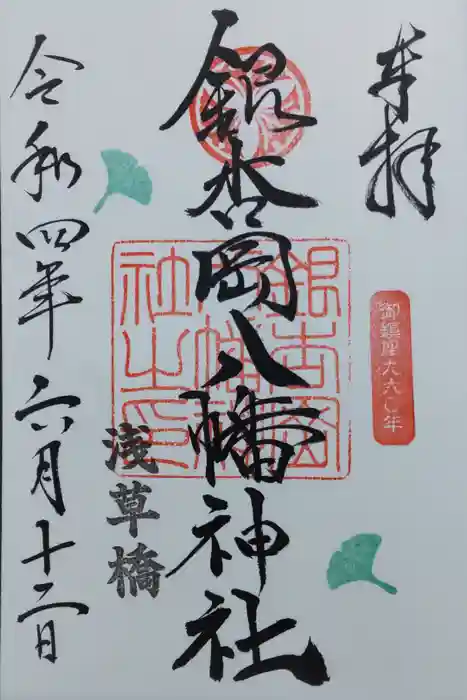 奉拝
御鎮座九六〇年
銀杏岡八幡神社
銀杏岡八幡神社之印
浅草橋
令和四年六月十二日